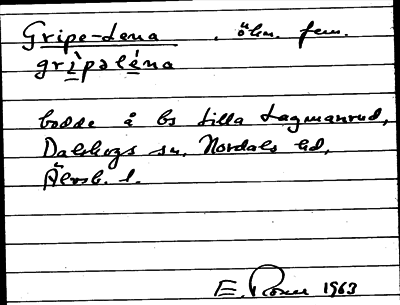 Gripe-Lena , öhn. fem.
gripəléna
bodde å bs Lilla Lagmanrud,
Dalskogs sn, Nordals hd,
Älvsb. l.
E. Rosell 1963